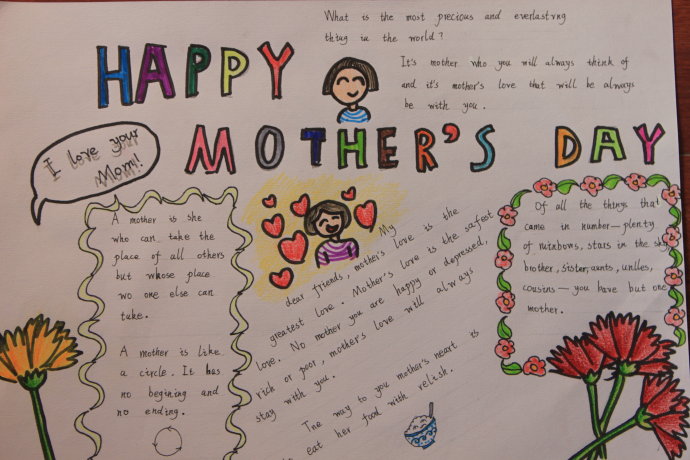 What is the most precious and everlastvng
thing in the world?
It's mother who you will always think of
and it's mother's love that will be always
be with you.
HAPPY
MOTHER'S DAY
I love your
Mom!
A mother is she
who can take the
place of all others
but whose place
wo one else can
take.
A mother is like
a circle. It has
no begining and
no ending.
My
dear friends, mothers love is the
greatest love. Mother's love is the safest
love. No mother you are happy or depressed,
rich or poor, mother's love will always
stay with you.
The way to you mother's heart is
eat her food with relish.
Of all the things that
came in number—plenty
of rainbows, stars in the sky,
brother, sister, aunts, unlles,
cousins—you have but one
mother.